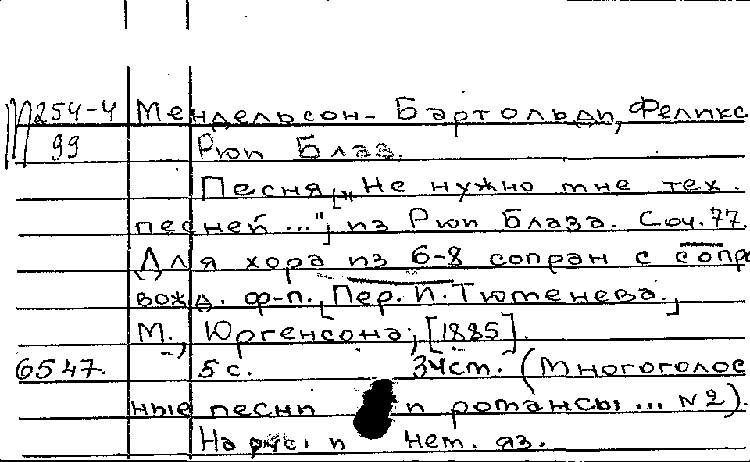 254-4 Мендельсон-Бартольди, Феликс
99 Рюи Блаз.
Песня ["Не нужно мне тех
песней ..."] из Рюи Блаза. Соч. 77.
Для хора из 6-8 сопран с сопро
вожд. ф-п. [Пер. И. Тюменева.]
М., Юргенсона, [1885].
6547. 5 с. 34см. (Многоголос
ные песни и романсы ... №2).
На рус. и нем. яз.